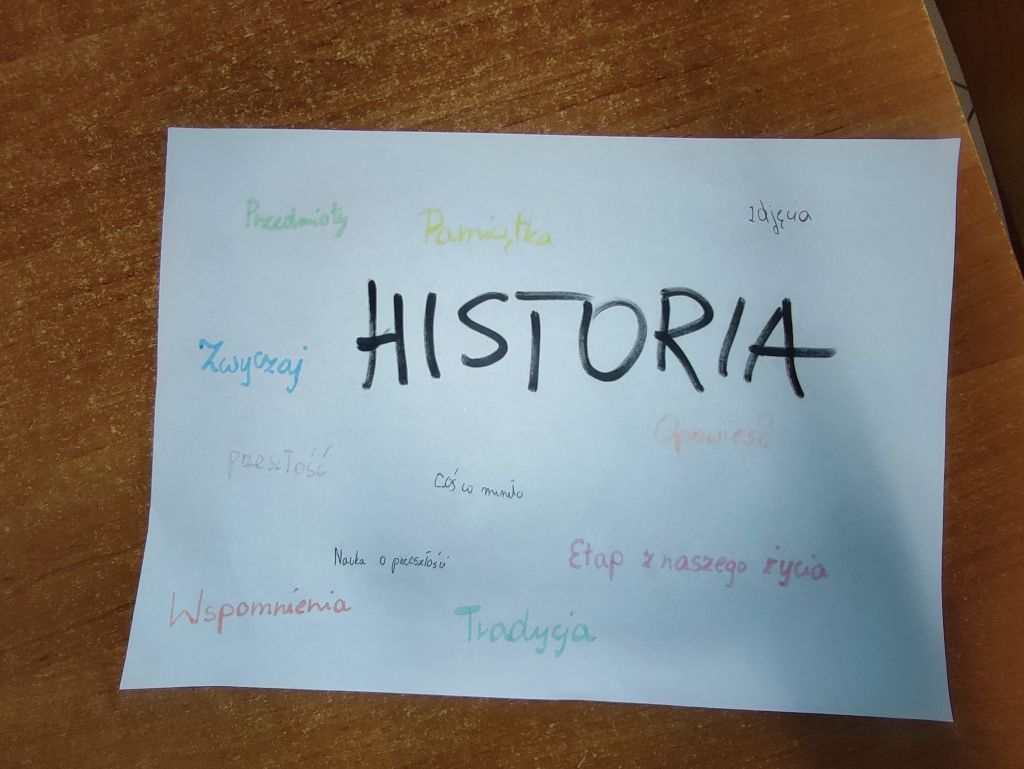 Przedmioty
Pamiątka
zdjęcia
HISTORIA
Zwyczaj
Opowieść
przeszłość
Coś co minęło
Nauka o przeszłości
Etap z naszego życia
Wspomnienia
Tradycja